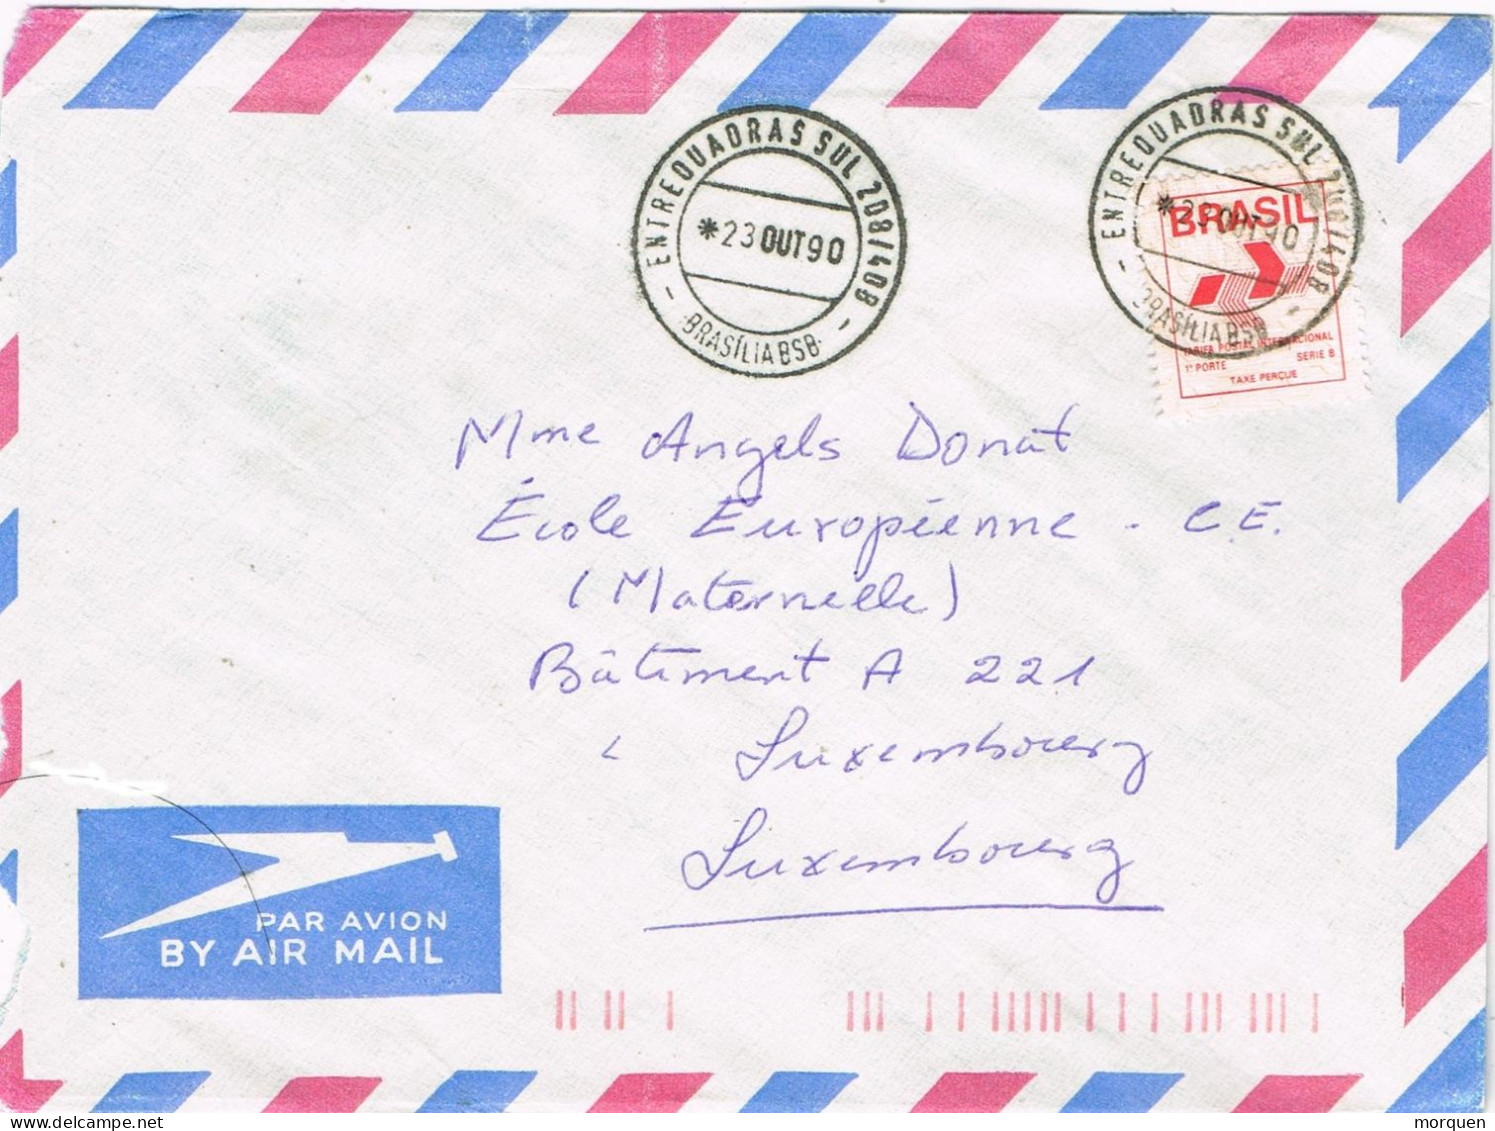 ENTREQUADRAS SUL 208/408
*23 OUT 90
BRASÍLIA BSB
ENTREQUADRAS SUL 208/408
*23 OUT 90
BRASÍLIA BSB
BRASIL
TARIFA POSTAL INTERNACIONAL
1º PORTE SERIE B
TAXE PERÇUE
Mme Angels Donat
École Européenne - C.E.
(Maternelle)
Bâtiment A 221
Luxembourg
Luxembourg
PAR AVION
BY AIR MAIL
morquen